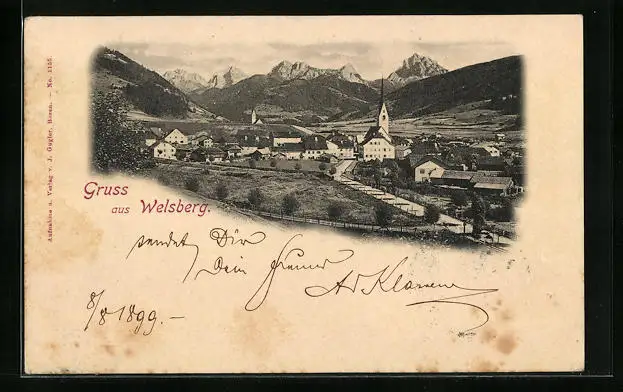 Aufnahme u. Verlag v. J. Gugler, Bozen. – No. 1155.
Gruss
aus Welsberg.
sendet Dir
Dein Freund
Ad Klassen
8/8 1899. –